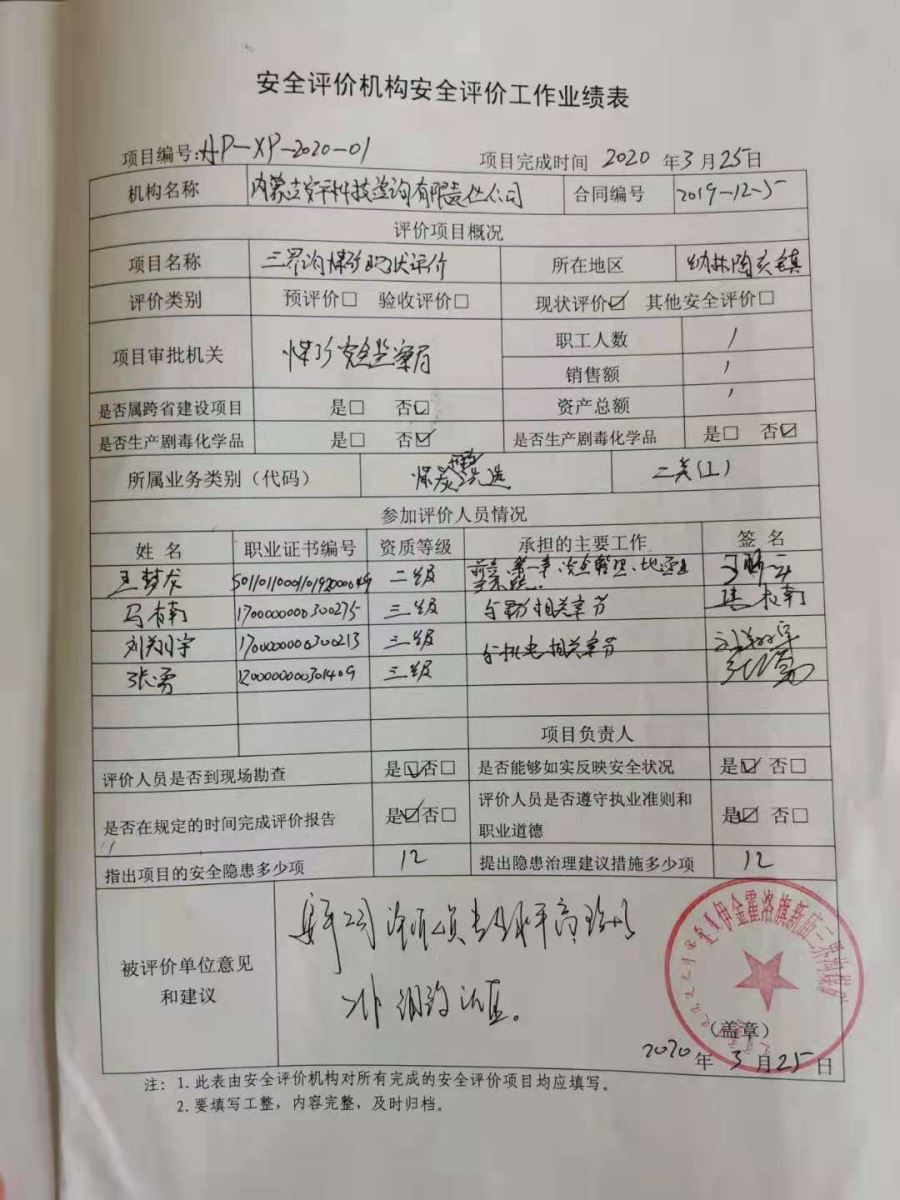 安全评价机构安全评价工作业绩表
项目编号:AP-XP-2020-01 项目完成时间 2020 年3月25日
机构名称 内蒙古安平科技咨询有限责任公司 合同编号 2019-12-5
评价项目概况
项目名称 三界沟煤矿现状评价 所在地区 纳林陶亥镇
评价类别 预评价□ 验收评价□ 现状评价☑ 其他安全评价□
项目审批机关 煤矿安全监察局 职工人数 /
销售额 /
资产总额 /
是否属跨省建设项目 是□ 否☑
是否生产剧毒化学品 是□ 否☑ 是否生产剧毒化学品 是□ 否☑
所属业务类别（代码） 煤炭 洗选 二类(1)
参加评价人员情况
姓 名 职业证书编号 资质等级 承担的主要工作 签 名
王梦龙 二级 前言、第一章、安全管理、
马有南 1700000000300275 三级 相关章节 马有南
刘翔宇 1700000000300213 三级 相关章节 刘翔宇
张勇 1200000000301409 三级 张勇
项目负责人
评价人员是否到现场勘查 是☑否□ 是否能够如实反映安全状况 是☑ 否□
是否在规定的时间完成评价报告 是☑否□ 评价人员是否遵守执业准则和
职业道德 是☑ 否□
指出项目的安全隐患多少项 12 提出隐患治理建议措施多少项 12
被评价单位意见
和建议
安平公司评价人员专业水平高
工作细致认真。
伊金霍洛旗新庙三界沟煤矿
（盖章）
2020 年 3 月 25 日
注：1. 此表由安全评价机构对所有完成的安全评价项目均应填写。
2. 要填写工整，内容完整，及时归档。